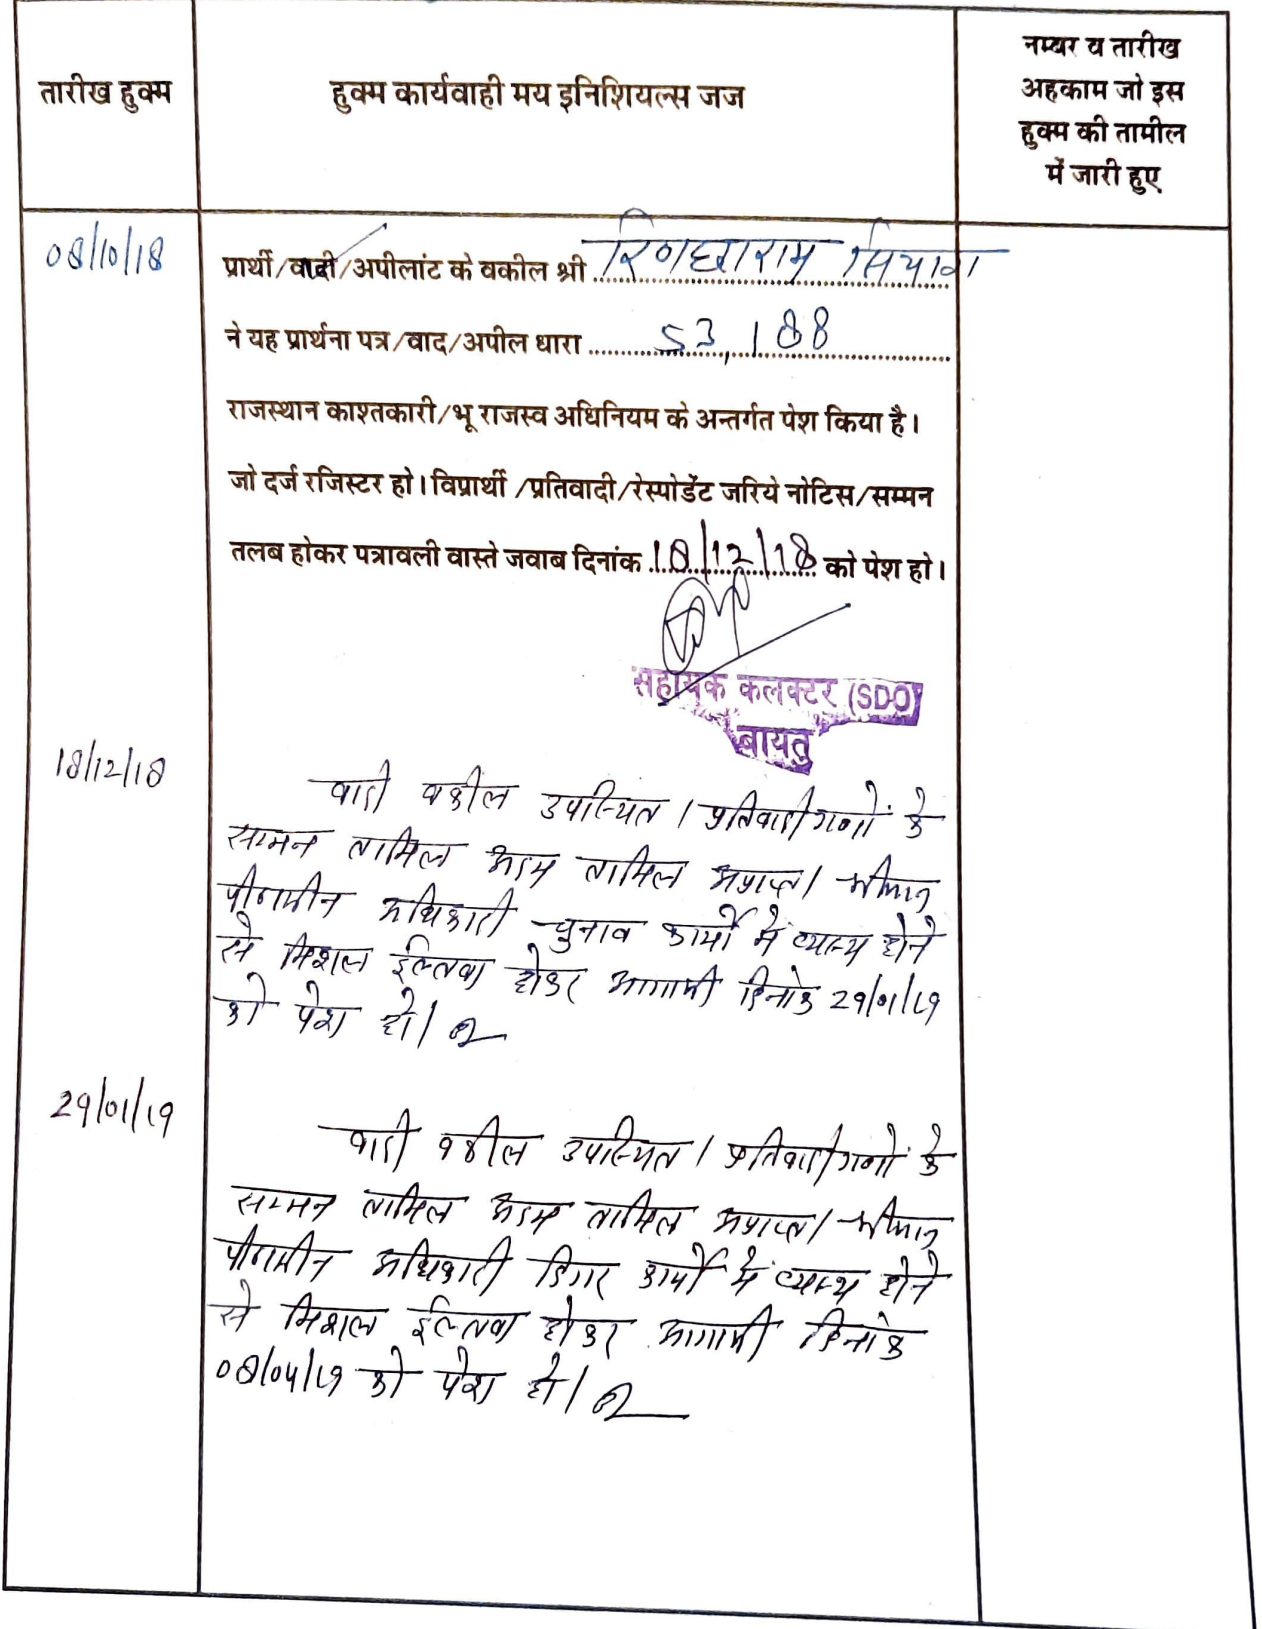 तारीख हुक्म
हुक्म कार्यवाही मय इनिशियल्स जज
नम्बर व तारीख
अहकाम जो इस
हुक्म की तामील
में जारी हुए
08/10/18
प्रार्थी/वादी/अपीलांट के वकील श्री सियाग
ने यह प्रार्थना पत्र/वाद/अपील धारा 53, 188
राजस्थान काश्तकारी/भू राजस्व अधिनियम के अन्तर्गत पेश किया है।
जो दर्ज रजिस्टर हो। विप्रार्थी /प्रतिवादी/रेस्पोडेंट जरिये नोटिस/सम्मन
तलब होकर पत्रावली वास्ते जवाब दिनांक 18/12/18 को पेश हो।
सहायक कलक्टर (SDO)
बायतु
18/12/18
वादी वकील उपस्थित। प्रतिवादीगणों के
सम्मन तामिल अदम तामिल अप्राप्त। श्रीमान
पीठासीन अधिकारी चुनाव कार्यो में व्यस्थ होने
से मिशल ईल्तवा होकर आगामी दिनांक 29/01/19
को पेश हो।
29/01/19
वादी वकील उपस्थित। प्रतिवादीगणों के
सम्मन तामिल अदम तामिल अप्राप्त। श्रीमान
पीठासीन अधिकारी डिगर कार्यो में व्यस्थ होने
से मिशल ईल्तवा होकर आगामी दिनांक
08/04/19 को पेश हो।